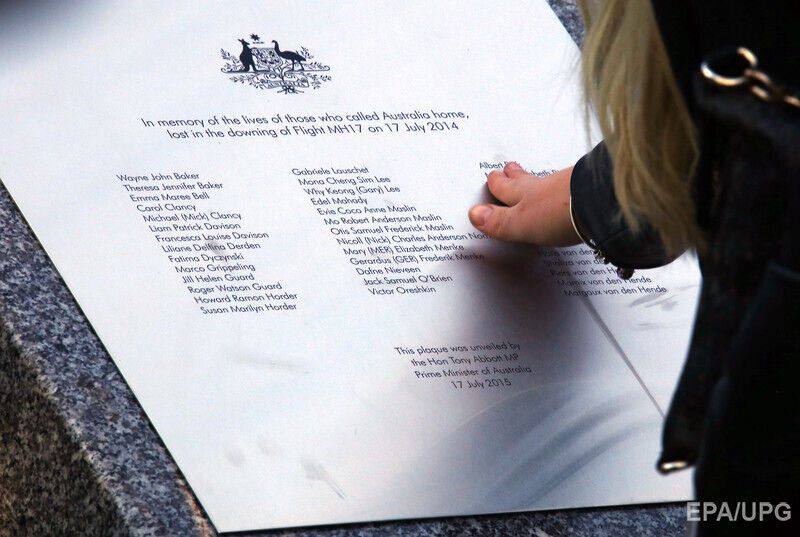 In memory of the lives of those who called Australia home,
lost in the downing of Flight MH17 on 17 July 2014
Wayne John Baker
Theresa Jennifer Baker
Emma Mares Bell
Carol Clancy
Michael (Mick) Clancy
Liam Patrick Davison
Francesca Louise Davison
Liliane Derden
Fatima Dyczynski
Marco Grippeling
Jill Helen Guard
Roger Watson Guard
Howard Raman Horder
Susan Marilyn Horder
Gabriele Lauschet
Mona Cheng Sim Lee
Why Keong (Gary) Lee
Edel Mahady
Evie Coco Anne Maslin
Mo Robert Anderson Maslin
Otis Samuel Frederick Maslin
Nicoll (Nick) Charles Anderson
Mary (MER) Elizabeth Menke
Gerardus (GER) Frederik Menke
Dafne Nieveen
Jack Samuel O'Brien
Victor Oreshkin
Albert
van den
Shaliza van den Hende
Piers van den Hende
Marnix van den Hende
Margaux van den Hende
This plaque was unveiled by
the Hon Tony Abbott MP
Prime Minister of Australia
17 July 2015
EPA/UPG